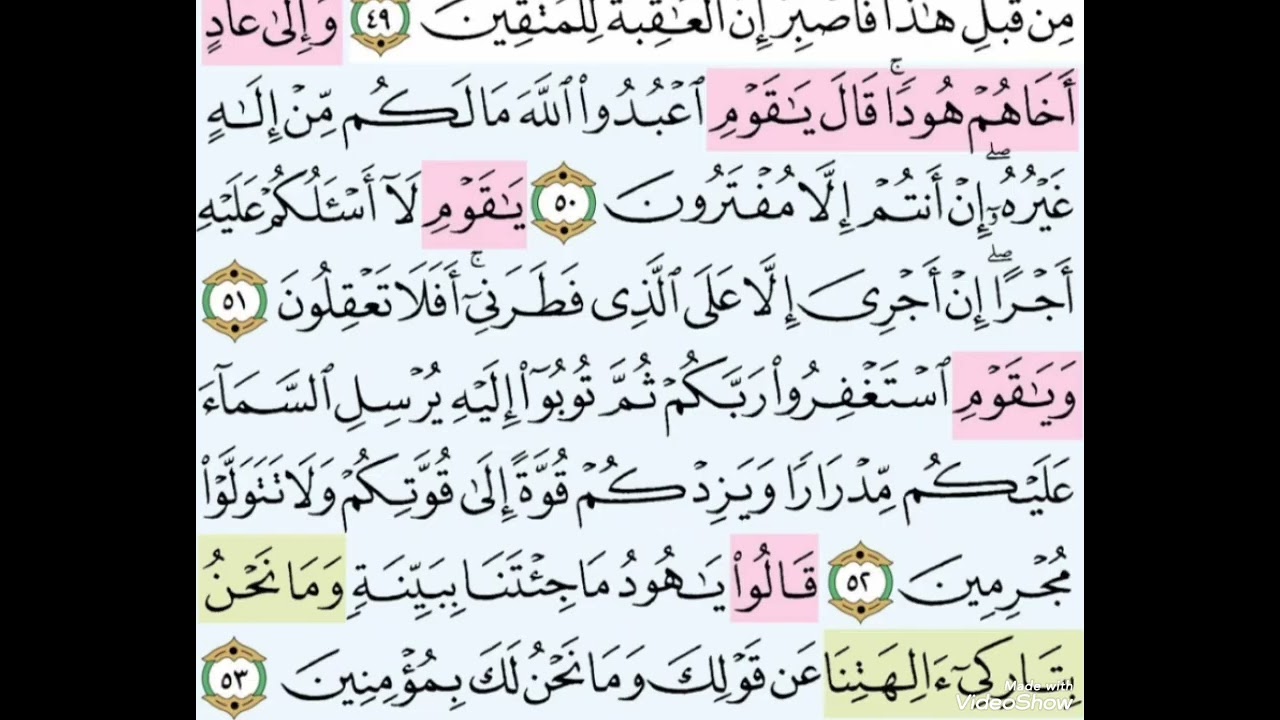 مِن قَبْلِ هَٰذَا فَاصْبِرْ إِنَّ الْعَاقِبَةَ لِلْمُتَّقِينَ ٤٩ وَإِلَىٰ عَادٍ
أَخَاهُمْ هُودًا ۚ قَالَ يَٰقَوْمِ ٱعْبُدُوا۟ ٱللَّهَ مَا لَكُم مِّنْ إِلَٰهٍ
غَيْرُهُۥٓ ۖ إِنْ أَنتُمْ إِلَّا مُفْتَرُونَ ٥٠ يَٰقَوْمِ لَآ أَسْـَٔلُكُمْ عَلَيْهِ
أَجْرًا ۖ إِنْ أَجْرِىَ إِلَّا عَلَى ٱلَّذِى فَطَرَنِىٓ ۚ أَفَلَا تَعْقِلُونَ ٥١
وَيَٰقَوْمِ ٱسْتَغْفِرُوا۟ رَبَّكُمْ ثُمَّ تُوبُوٓا۟ إِلَيْهِ يُرْسِلِ ٱلسَّمَآءَ
عَلَيْكُم مِّدْرَارًا وَيَزِدْكُمْ قُوَّةً إِلَىٰ قُوَّتِكُمْ وَلَا تَتَوَلَّوْا۟
مُجْرِمِينَ ٥٢ قَالُوا۟ يَٰهُودُ مَا جِئْتَنَا بِبَيِّنَةٍ وَمَا نَحْنُ
بِتَارِكِىٓ ءَالِهَتِنَا عَن قَوْلِكَ وَمَا نَحْنُ لَكَ بِمُؤْمِنِينَ ٥٣
Made with
VideoShow